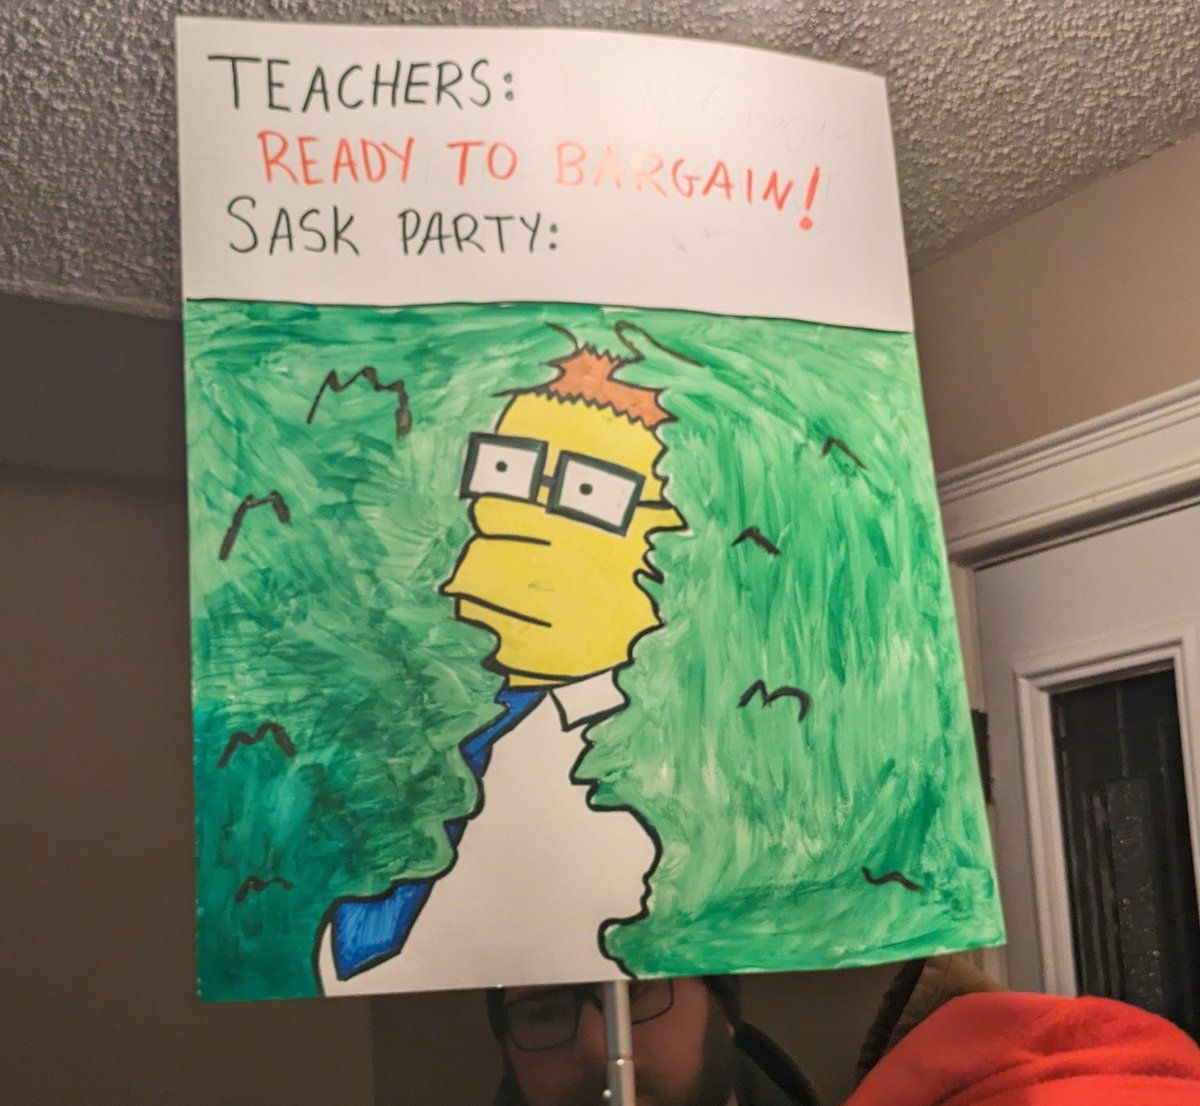 TEACHERS:
READY TO BARGAIN!
SASK PARTY: